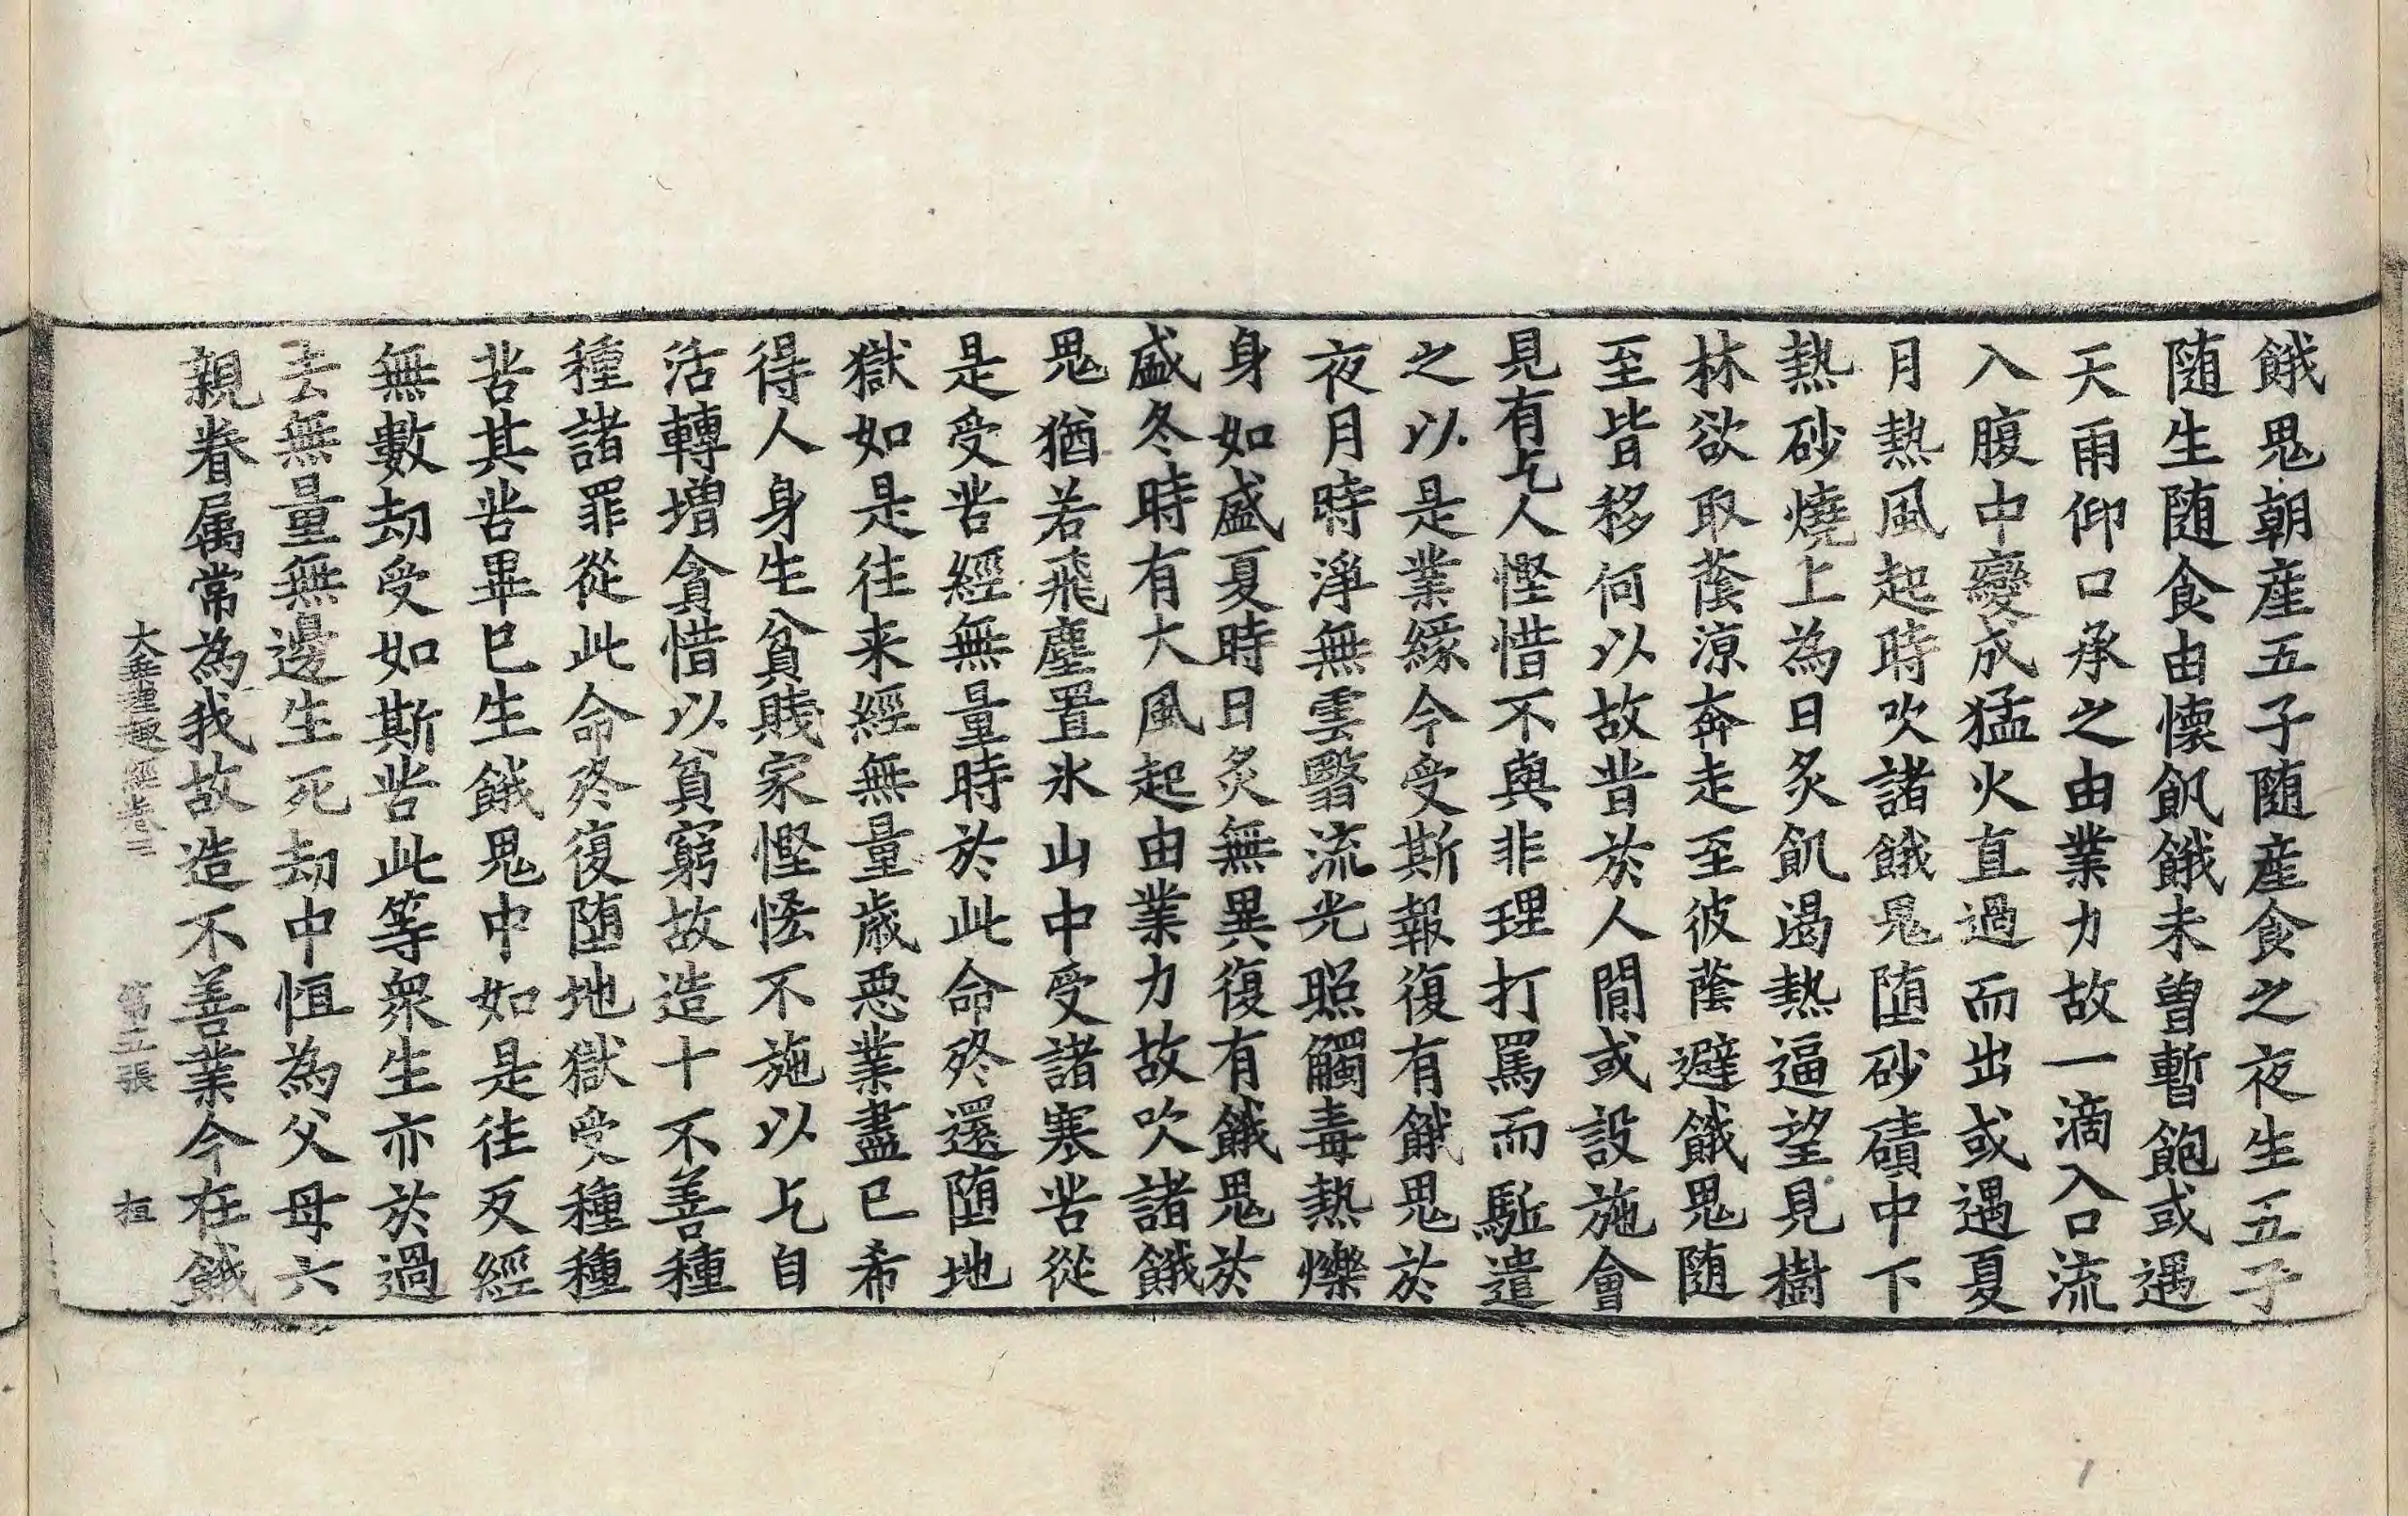 餓鬼朝産五子随産食之夜生五子
随生随食由懐飢餓未曽暫飽或遇
天雨仰口承之由業力故一滴入口流
入腹中變成猛火直過而出或遇夏
月熱風起時吹諸餓鬼堕砂磧中下
熱砂燒上為日炙飢渴熱逼望見樹
林欲取蔭涼奔走至彼蔭避餓鬼随
至皆移何以故昔於人間或設施會
見有乞人慳惜不與非理打罵而駈遣
之以是業緣今受斯報復有餓鬼於
夜月時淨無雲翳流光照觸毒熱爍
身如盛夏時日炙無異復有餓鬼於
盛冬時有大風起由業力故吹諸餓
鬼猶若飛塵置氷山中受諸寒苦從
是受苦經無量時於此命终還堕地
獄如是往来經無量歳悪業盡已希
得人身生貧賤家慳悋不施以乞自
活轉增貪惜以貧窮故造十不善種
種諸罪從此命终復堕地獄受種種
苦其苦畢已生餓鬼中如是往反經
無數劫受如斯苦此等衆生亦於過
去無量無邊生死劫中恒為父母六
親眷属常為我故造不善業今在餓
大乗理趣經卷三 第五張 桓